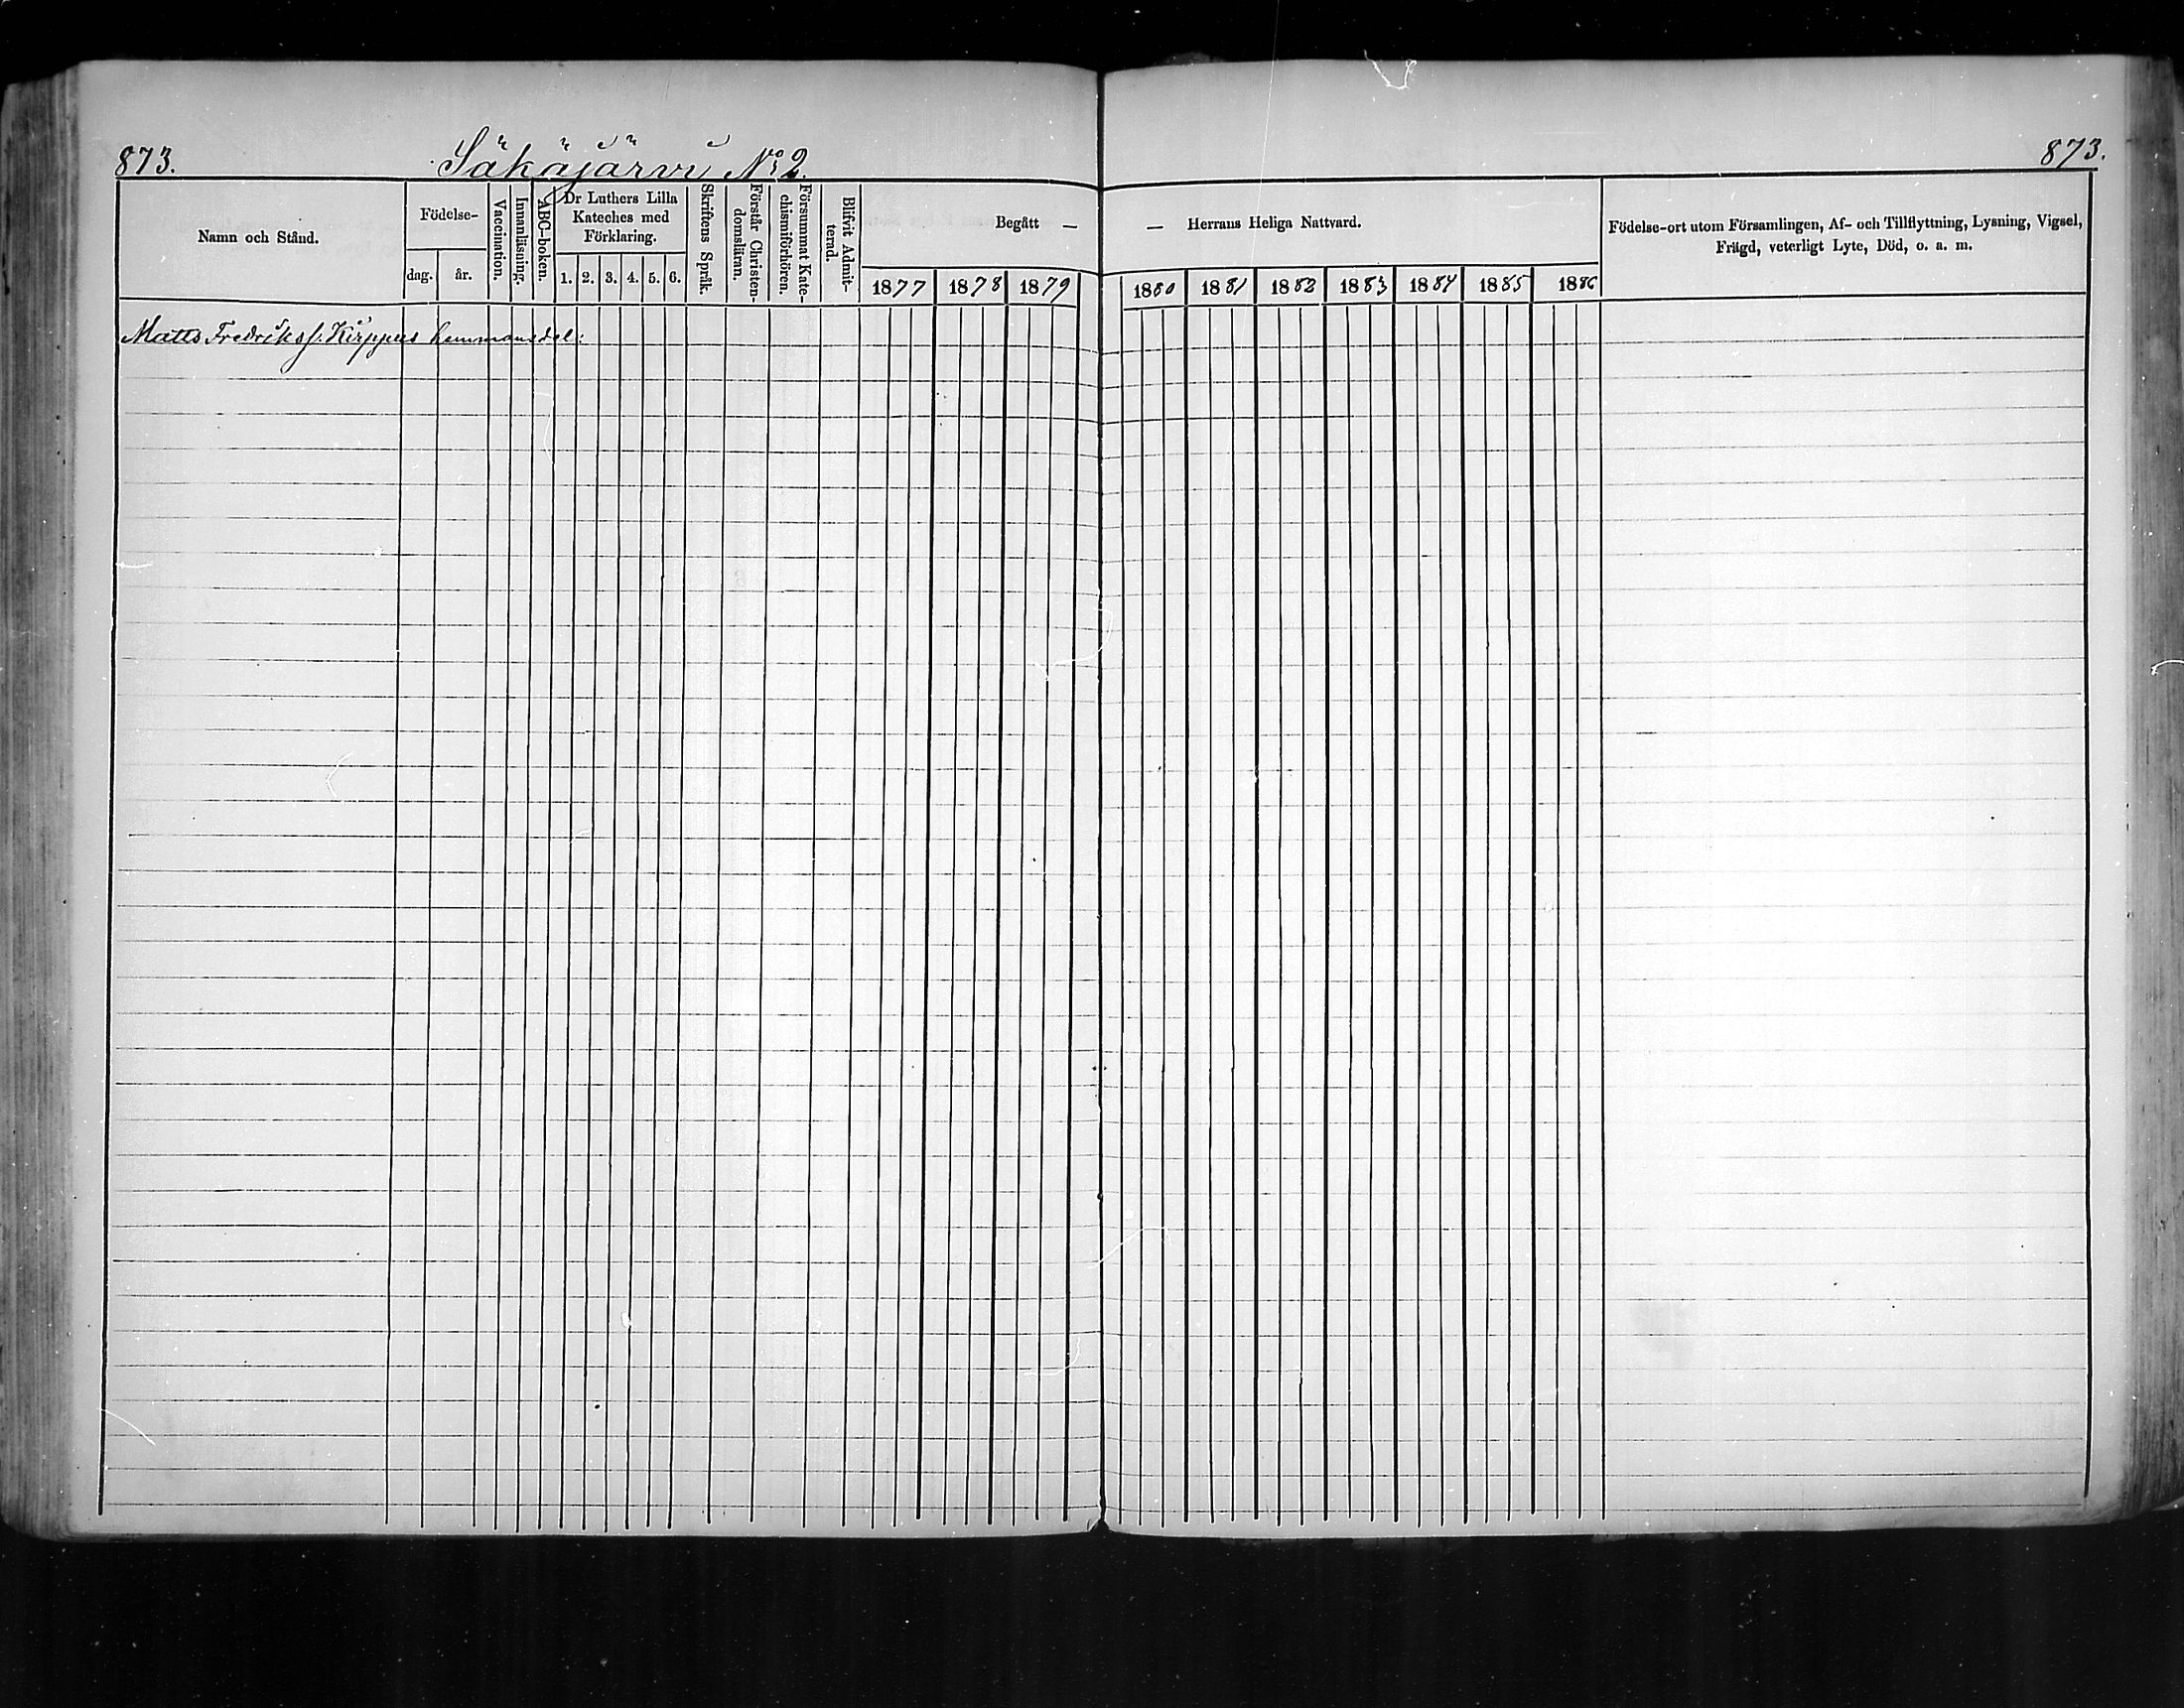 873.
Säkäjärvi No 2.
873.
Namn och Stånd.
Födelse-
dag.
år.
Vaccination.
Innanläsning.
ABC-boken.
Dr Luthers Lilla
Kateches med
Förklaring.
1. 2. 3. 4. 5. 6.
Skriftens Språk.
Förstår Christen-
domsläran.
Försummat Kate-
chismiförhören.
Blifvit Admit-
terad.
Begått —
1877 1878 1879
— Herrans Heliga Nattvard.
1880 1881 1882 1883 1884 1885 1886
Födelse-ort utom Församlingen, Af- och Tillflyttning, Lysning, Vigsel,
Frägd, veterligt Lyte, Död, o. a. m.
Matts Fredrikss. Kirppus hemmansdel: